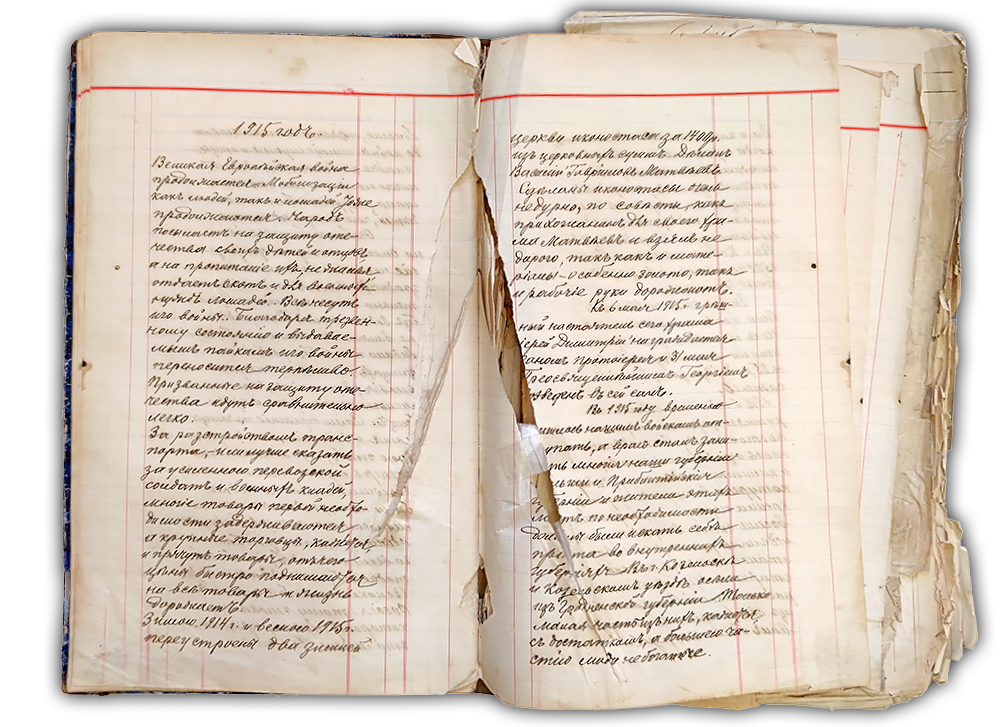 1915 годъ.
Великая Европейская война
продолжается. Мобилизация
какъ людей, такъ и лошадей тоже
продолжается. Народъ
посылаетъ на защиту оте-
чества своихъ дѣтей и отцовъ
а на пропитаніе ихъ, не жалѣя
отдаетъ скотъ и для военныхъ
нуждъ лошадей. Все несутъ
иго войны. Благодаря трезвен-
ному состоянію и выдавае-
мымъ пайкамъ иго войны
переносится терпѣливо.
Призванные на защиту оте-
чества идутъ сравнительно
легко.
За разстройствомъ транс-
порта, или лучше сказать
за усиленной перевозкой
солдатъ и военныхъ кладей,
многіе товары первой необхо-
димости задерживаются
а крупные торговцы, кажется,
и прячутъ товары, отчего
цѣны быстро поднимаются
на всѣ товары и жизнь
дорожаетъ.
Зимою 1914 г. и весною 1915 г.
переустроены два зимней
церкви иконостаса за 1400 р.
изъ церковныхъ суммъ. Дѣлалъ
Василій Гавриловъ Матвѣевъ.
Сдѣланы иконостасы очень
недурно, по совѣсти, какъ
прихожанинъ для своего хра-
ма Матвѣевъ и взялъ не
дорого, такъ какъ и мате-
ріалы – особенно золото, такъ
и рабочіе руки дорожаютъ.
Къ 6 мая 1915 г. грѣш-
ный настоятель сего храма
іерей Димитрій награждается
саномъ протоіерея и 31 мая
Преосвященнѣйшимъ Георгіемъ
возведенъ въ сей санъ.
Въ 1915 году временно
пришлось нашимъ войскамъ от-
ступать, а врагъ сталъ зани-
мать многія наши губерніи
Польши и Прибалтійскія
губерніи и жители этихъ
мѣстъ по необходимости
должны были искать себѣ
пріюта во внутреннихъ
губерніяхъ. Въ г. Козельскѣ
и Козельскомъ уѣздѣ осѣли
изъ Гродненской губерніи. Только
малая часть изъ нихъ, кажется,
съ достаткомъ, а большею ча-
стію люди небогатые.